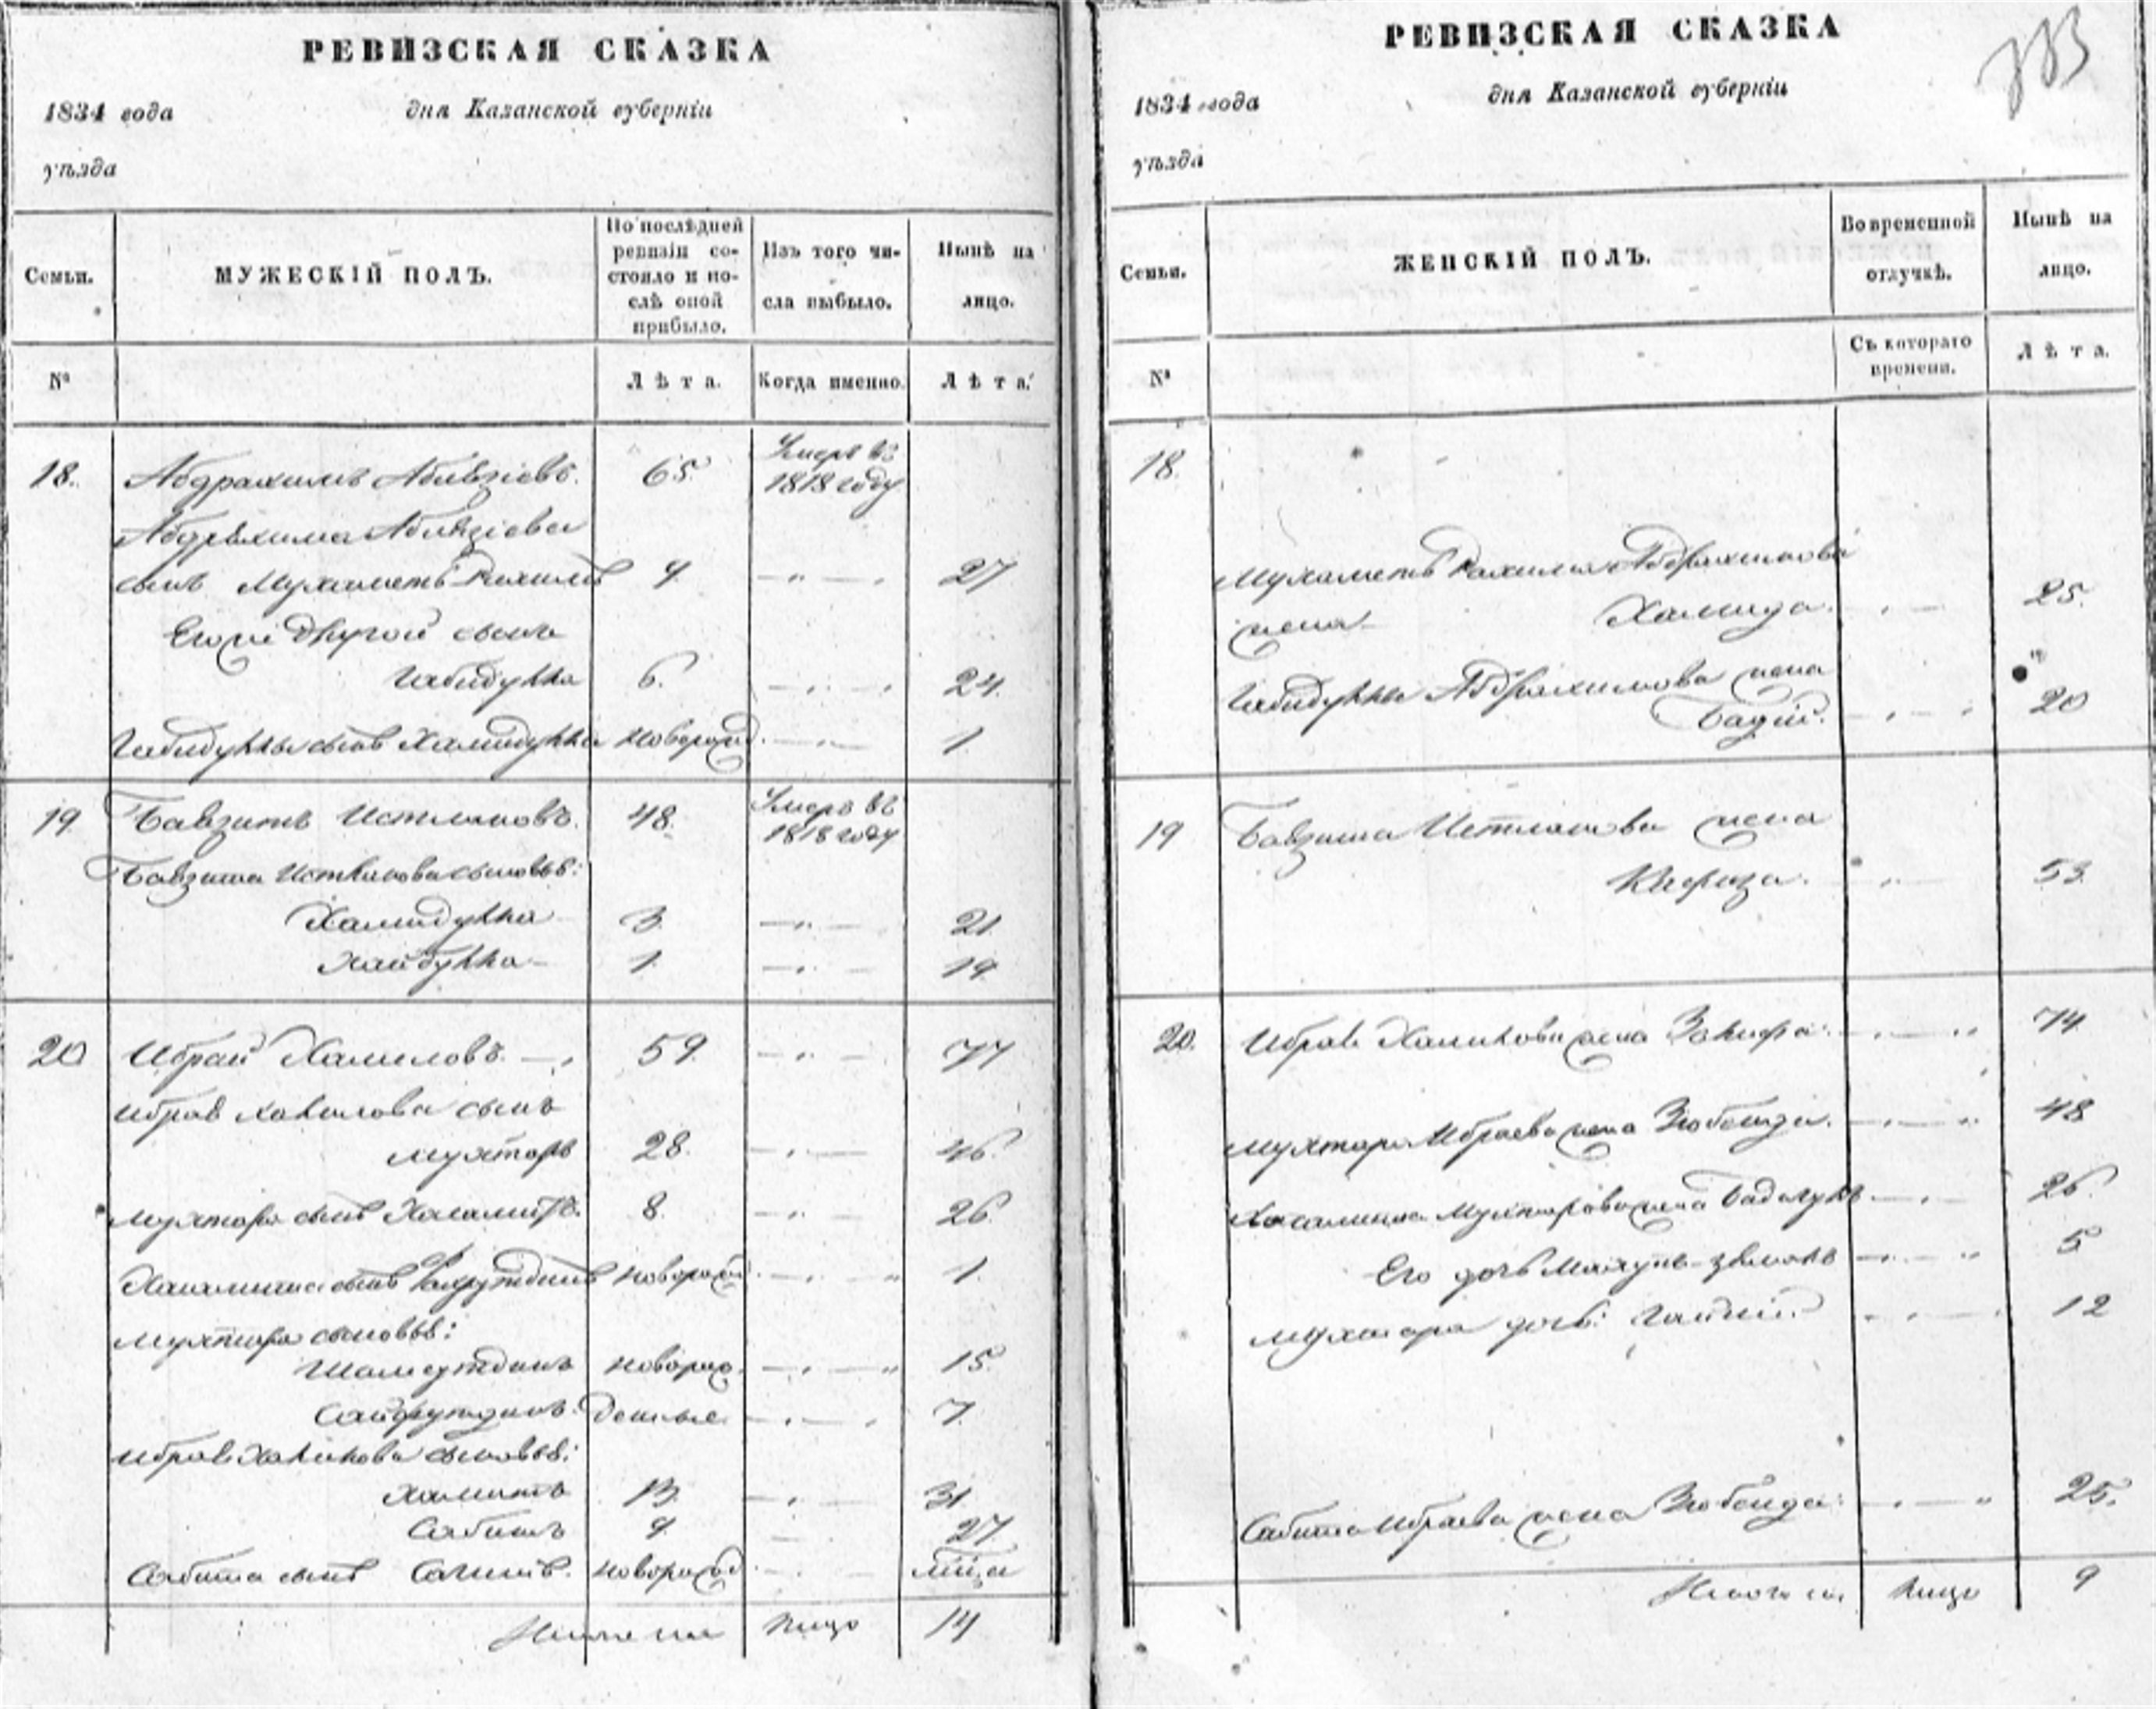 РЕВИЗСКАЯ СКАЗКА
1834 года дня Казанской губерніи
уѣзда
Семьи. МУЖЕСКІЙ ПОЛЪ. По послѣдней ревизіи состояло и послѣ оной прибыло. Изъ того числа выбыло. Нынѣ на лицо.
№ Лѣта. Когда именно. Лѣта.
18. Абдрахимъ Аблязіовъ. 65. Умеръ въ 1818 году
Абдрахима Аблязіова
сынъ Мухаметъ Рахимъ 9. 27
Его же другой сынъ
Габидулла 6. 24.
Габидуллы сынъ Халидулла новорожд. 1.
19 Баязитъ Истляковъ. 48. Умеръ въ 1818 году
Баязита сыновья:
Халидулла 3. 21.
Хайбулла 1. 19.
20 Ибрай Халиловъ. 59. 77
Ибрая Халилова сынъ
Мухтаръ 28. 46.
Мухтара сынъ 8. 26.
сынъ новорожд. 1.
Мухтара сыновья:
новорож. 15.
Сайфутдинъ денные. 7.
Ибрая Халилова сыновья:
Хамитъ 13. 31.
Сабитъ 9 27
Сабита сынъ новорожд.
Итого на лицо 14
РЕВИЗСКАЯ СКАЗКА
1834 года дня Казанской губерніи
уѣзда
Семьи. ЖЕНСКІЙ ПОЛЪ. Во временной отлучкѣ. Нынѣ на лицо.
№ Съ котораго времени. Лѣта.
18.
Мухаметъ Рахима Абдрахимова
жена Халида. 25.
Габидуллы Абдрахимова жена
20
19 Баязита жена
53.
20. Ибрая Халилова жена Зялифа. 74.
Мухтара Ибраева жена Зюбейда. 48
Мухтарова жена 26.
Его дочь 5
Мухтара дочь: 12
Сабита Ибраева жена Зюбейда. 25.
Итого на лицо 9